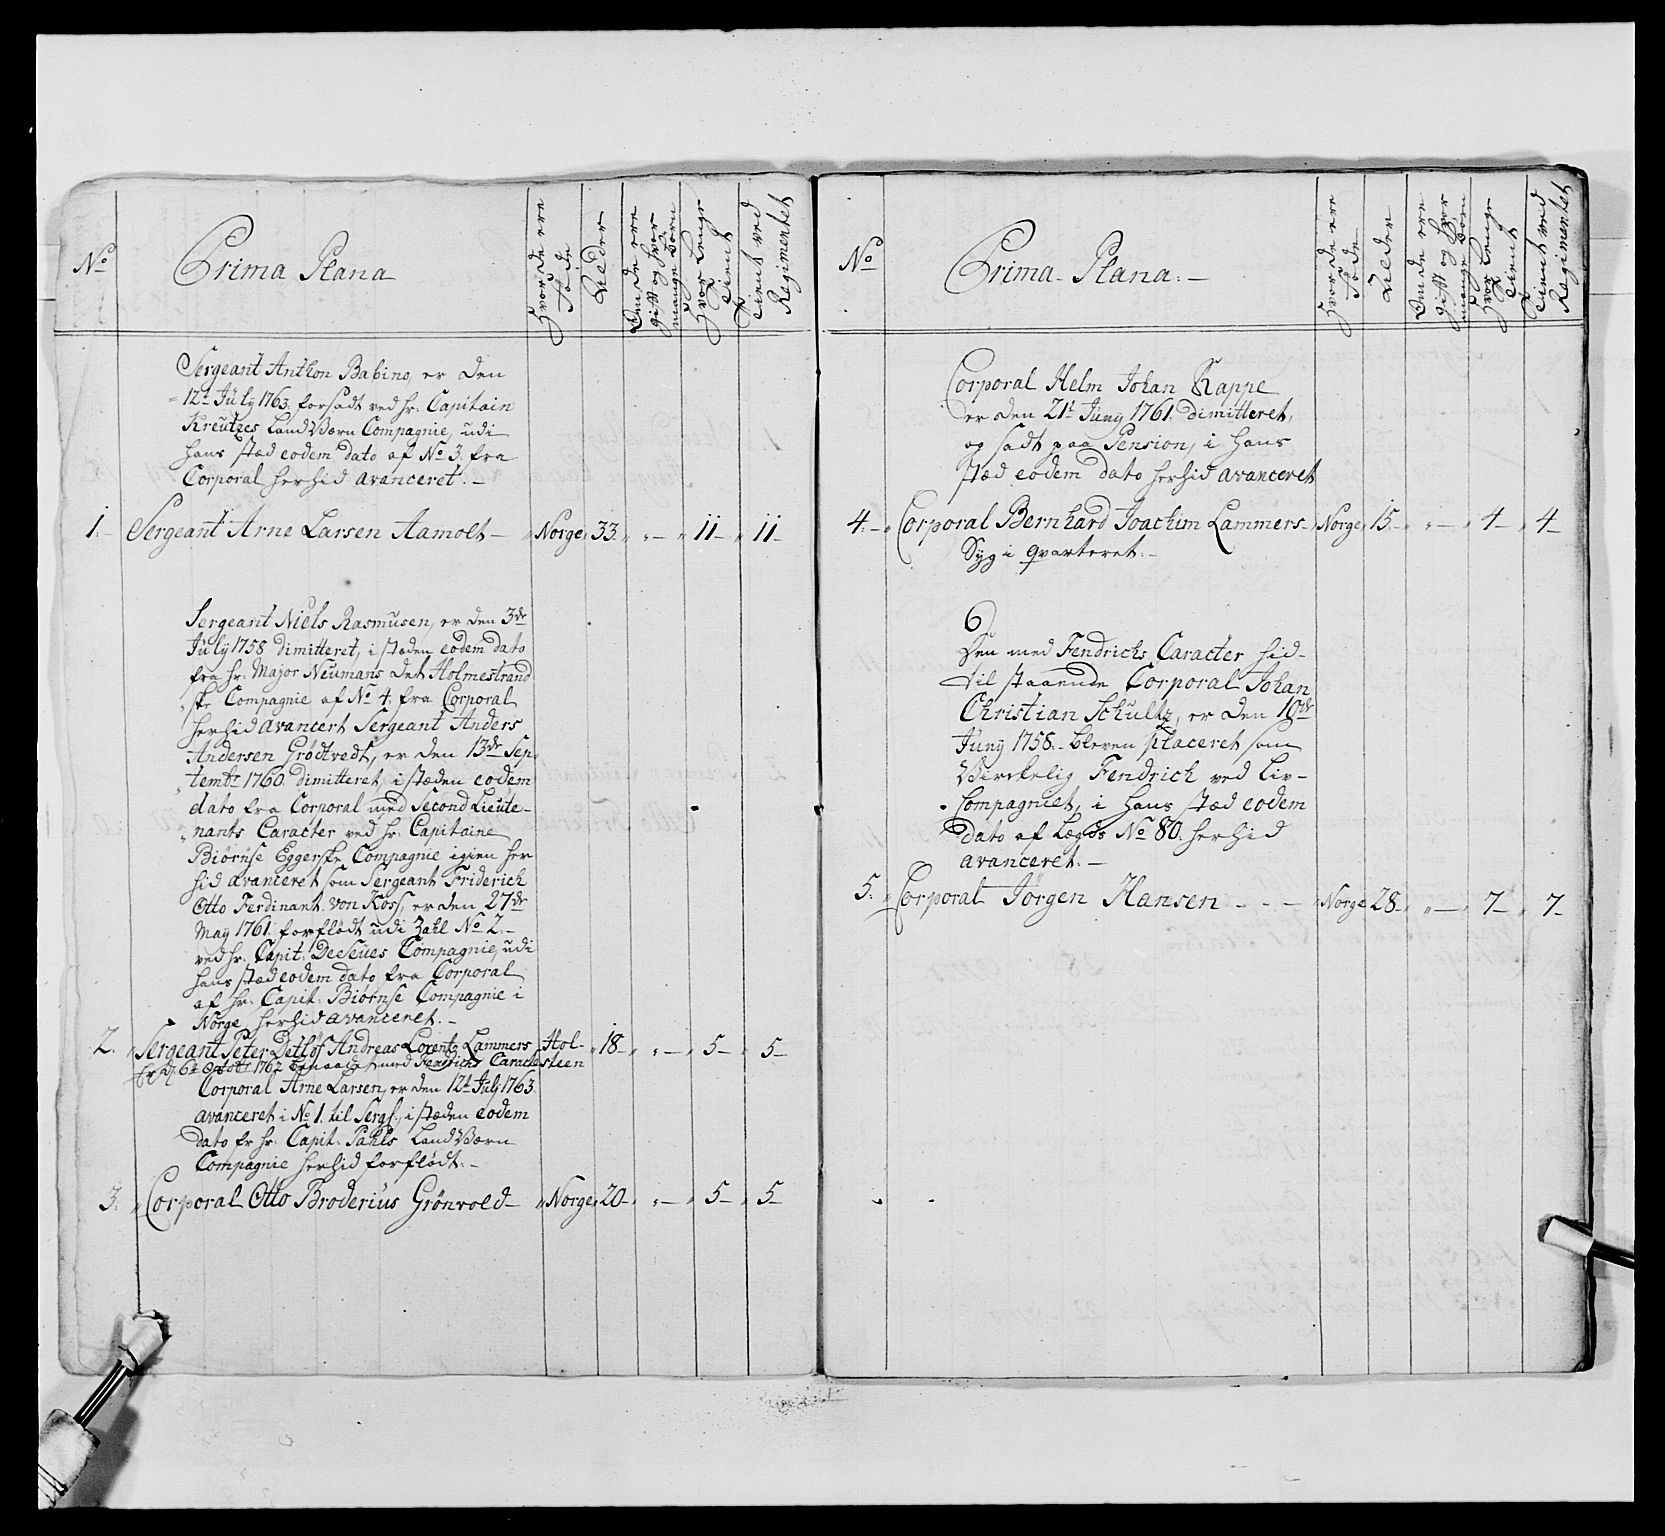 No
Prima Plana
Hvor de ere
fødde
Alder
Om de ere
gift og hvor
mange børn
Hvor lenge
tient
Tient ved
Regimentet
Sergeant Anthon Babino, er den
12t July 1763. forsadt ved hr. Capitain
Kreutzes LandVærn Compagnie, udi
hans stæd eodem dato af No 3. fra
Corporal herhid avanceret. -
1. Sergeant Arne Larsen Aamolt - Norge 33. " - 11 - 11 -
Sergeant Niels Rasmusen, er den 3de
July 1758 dimitteret, i stæden eodem dato
fra hr. Major Neumans det Holmestrand
ske Compagnie af No 4. fra Corporal
herhid avancert Sergeant Anders
Andersen Grødtvedt, er den 13de Sep-
tembr 1760. dimitteret, i stæden eodem
dato fra Corporal med Second Lieute-
nants Caracter ved hr. Capitaine
Biørnse Eggerske Compagnie igien her
hid avanceret som Sergeant Friderich
Otto Ferdinant von Koss, er den 27de
May 1761. forflødt udi Zahl No 2. -
ved hr. Capit: DeSeües Compagnie, udi
hans stæd eodem dato fra Corporal
af hr. Capit: Biørnse Compagnie i
Norge herhid avanceret. -
2. Sergeant Peter Detløf Andreas Lorentz Lammers Hol- 18 - " - 5 - 5 -
6t Octobr 1762 benaadet med Fendrichs Caracter steen
Corporal Arne Larsen, er den 12t July 1763.
avanceret i No 1. til Serg:, i stæden eodem
dato fr hr. Capit: Pahls LandVærn
Compagnie herhid forflødt. -
3. Corporal Otto Broderius Grönvold - Norge 20 - " - 5 - 5 -
No
Prima Plana. -
Hvor de ere
fødde
Alder
Om de ere
gift og hvor
mange børn
Hvor lenge
tient
Tient ved
Regimentet
Corporal Helm Johan Kappe
er den 21t Juny 1761. dimitteret,
og sadt paa Pension, i hans
stæd eodem dato herhid avanceret
4. - Corporal Bernhard Joachim Lammers - Norge 15. " - 4 - 4 -
Syg i qvarteret. -
Den med Fendrichs Caracter hid-
til staaende Corporal Johan
Christian Schultz, er den 10de
Juny 1758. - bleven placeret som
Virckelig Fendrich ved Liv-
Compagniet, i hans stæd eodem
dato af Lægds No 80. herhid
avanceret. -
5. Corporal Jörgen Hansen - - - Norge 28 - " - 7 - 7 -